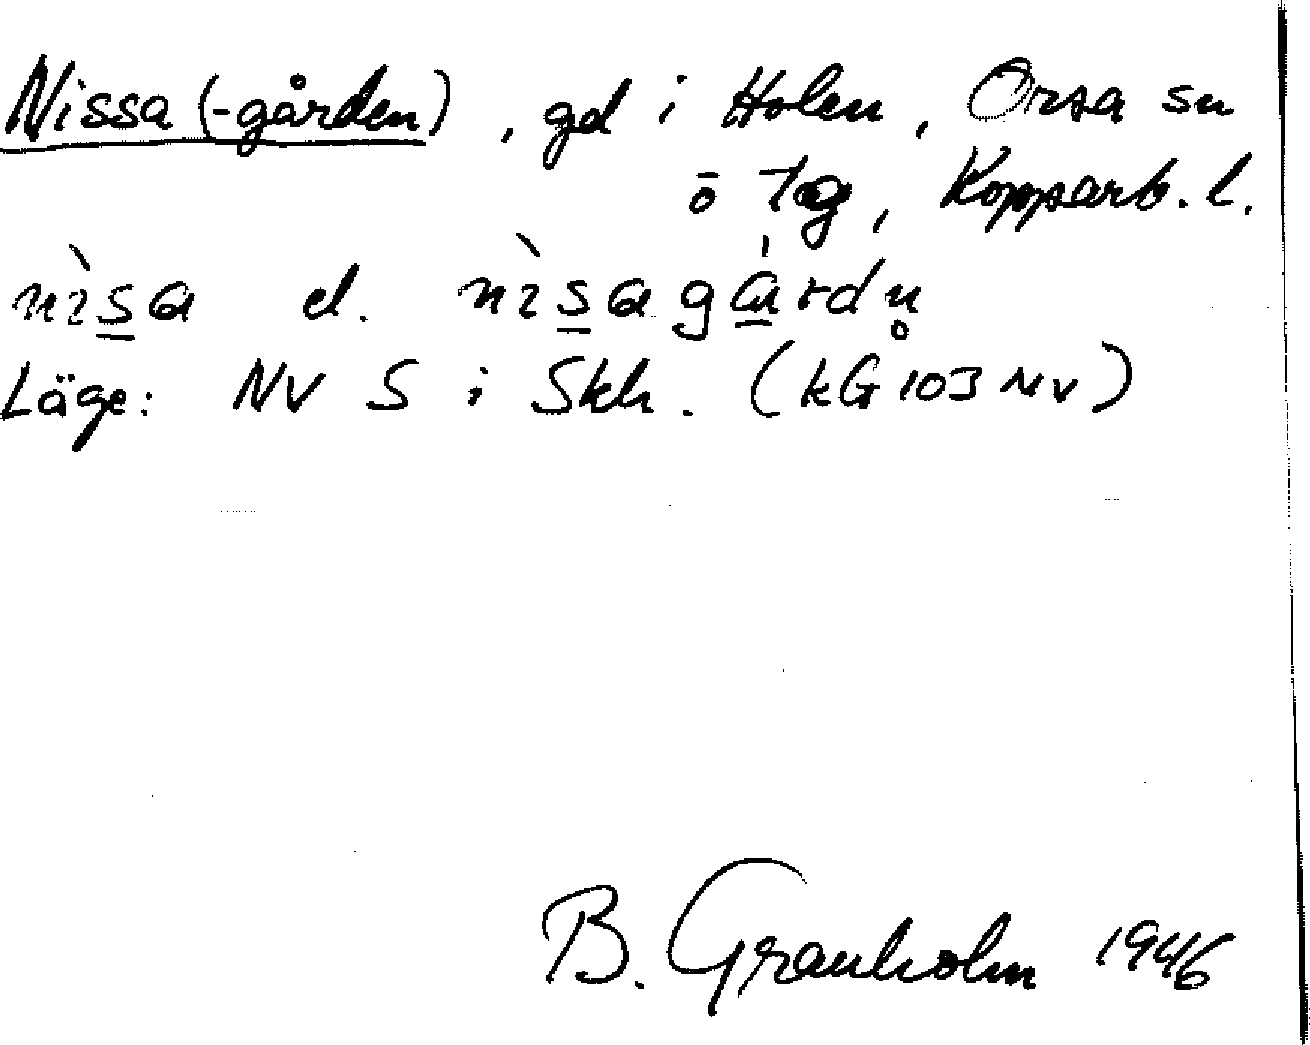 Nissa (-gården), gd i Holen, Orsa sn
ö tg, Kopparb. l.
nìsa el. nìsagárdn̥
Läge: NV S i Skh. (kG 103 NV)
B. Granholm 1946